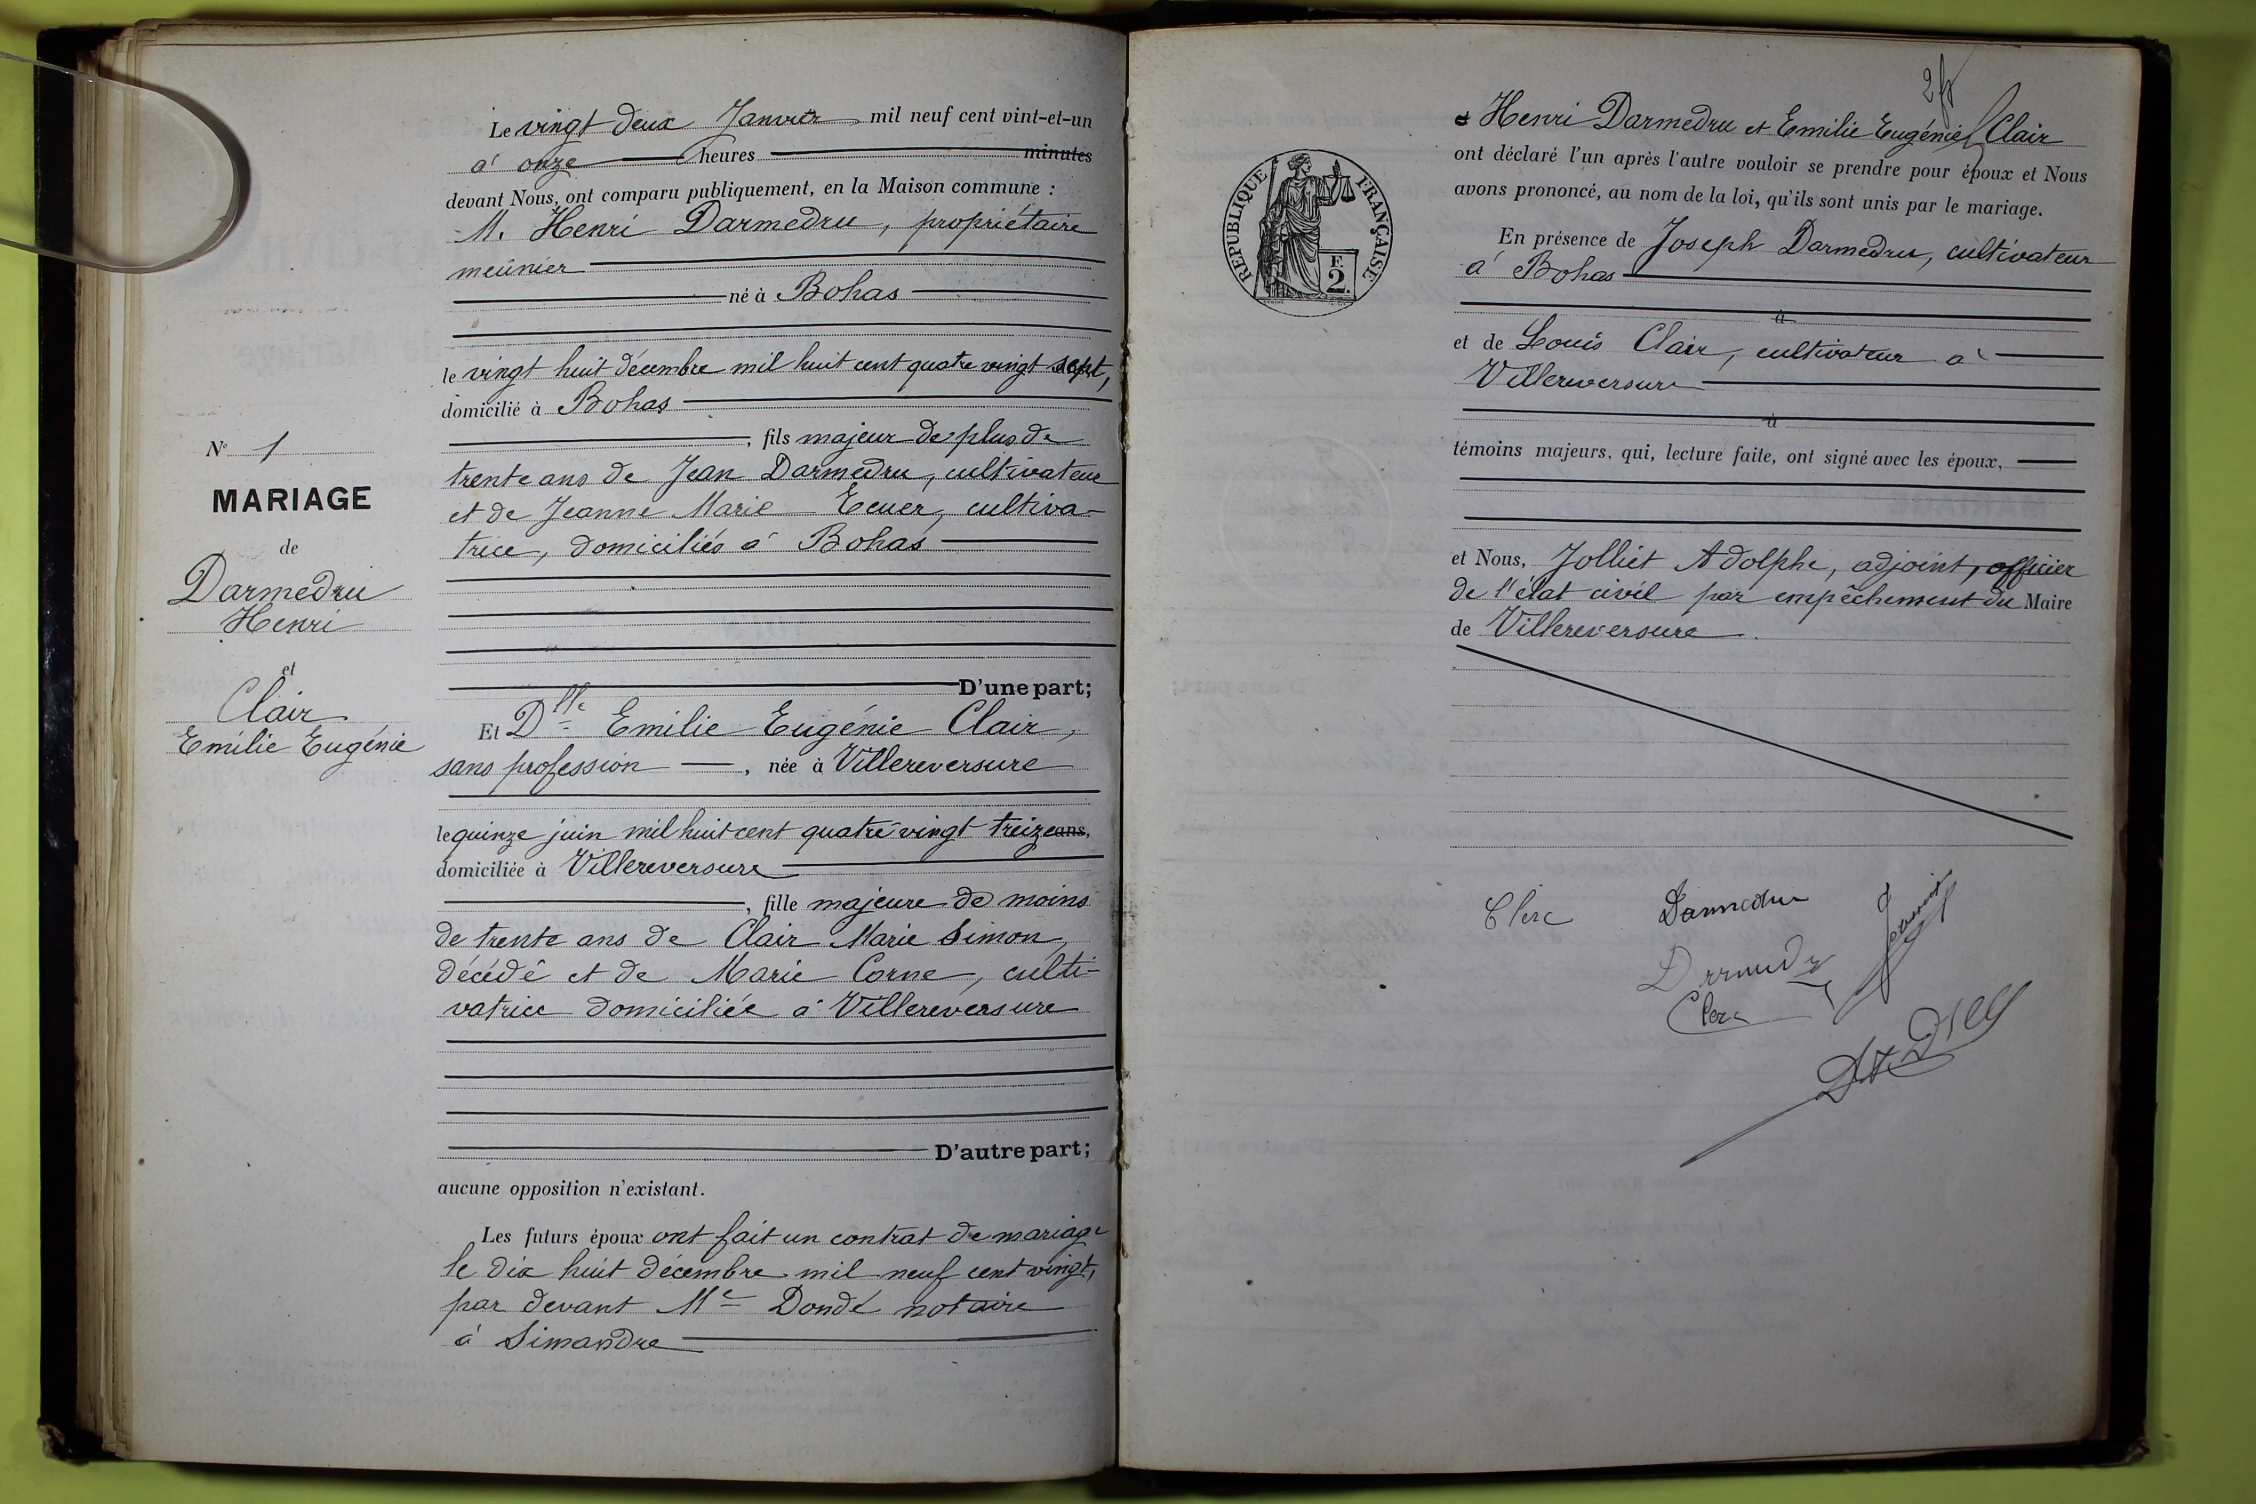 Le vingt deux Janvier mil neuf cent vint-et-un
à onze heures minutes
devant Nous, ont comparu publiquement, en la Maison commune :
M. Henri Darmedru, propriétaire
meûnier
né à Bohas
le vingt huit décembre mil huit cent quatre vingt sept,
domicilié à Bohas
, fils majeur de plus de
trente ans de Jean Darmedru, cultivateur
et de Jeanne Marie Ecuer, cultiva-
trice, domiciliés à Bohas
D'une part;
Et Dlle Emilie Eugénie Clair,
sans profession , née à Villereversure
le quinze juin mil huit cent quatre vingt treize ans,
domiciliée à Villereversure
, fille majeure de moins
de trente ans de Clair Marie Simon,
décédé et de Marie Corne, culti-
vatrice domiciliée à Villereversure
D'autre part;
aucune opposition n'existant.
Les futurs époux ont fait un contrat de mariage
le dix huit décembre mil neuf cent vingt,
par devant Me Dondé notaire
à Simandre
N° 1
MARIAGE
de
Darmedru
Henri
et
Clair
Emilie Eugénie
2 fr
RÉPUBLIQUE FRANÇAISE
F.
2.
Henri Darmedru et Emilie Eugénie Clair
ont déclaré l'un après l'autre vouloir se prendre pour époux et Nous
avons prononcé, au nom de la loi, qu'ils sont unis par le mariage.
En présence de Joseph Darmedru, cultivateur
à Bohas
à
et de Louis Clair, cultivateur à
Villereversure
à
témoins majeurs, qui, lecture faite, ont signé avec les époux,
et Nous, Jolliet Adolphe, adjoint, officier
de l'état civil par empêchement du Maire
de Villereversure
Clerc
Darmedru
Clerc